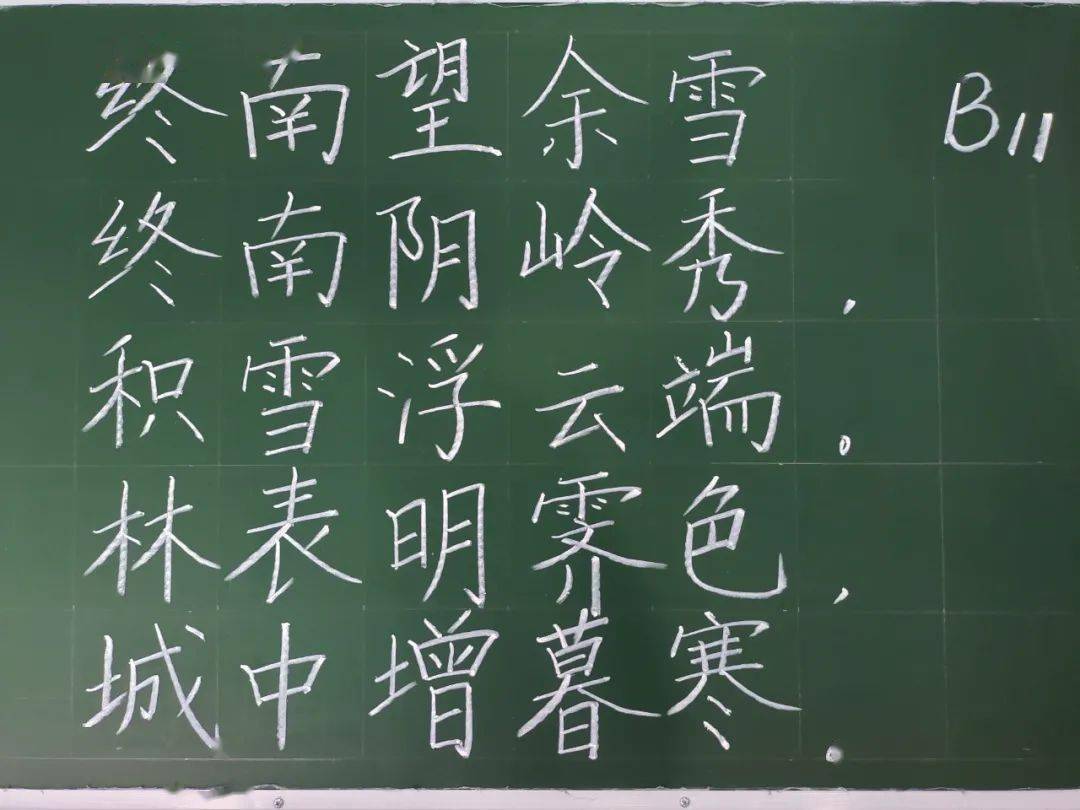 终南望余雪
B11
终南阴岭秀，
积雪浮云端。
林表明霁色，
城中增暮寒。